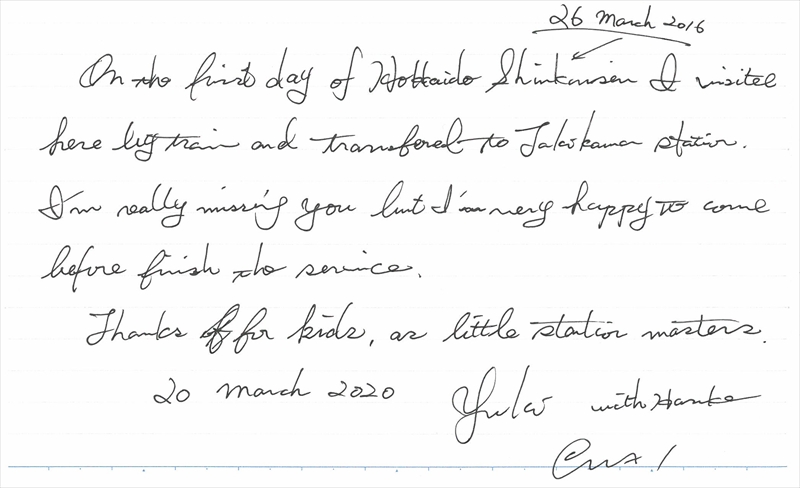 26 March 2016
On the first day of Hokkaido Shinkansen I visited
here by train and transfered to Takikawa station.
I'm really missing you but I'm very happy to come
before finish the service.
Thanks for kids, as little station masters.
20 March 2020 with